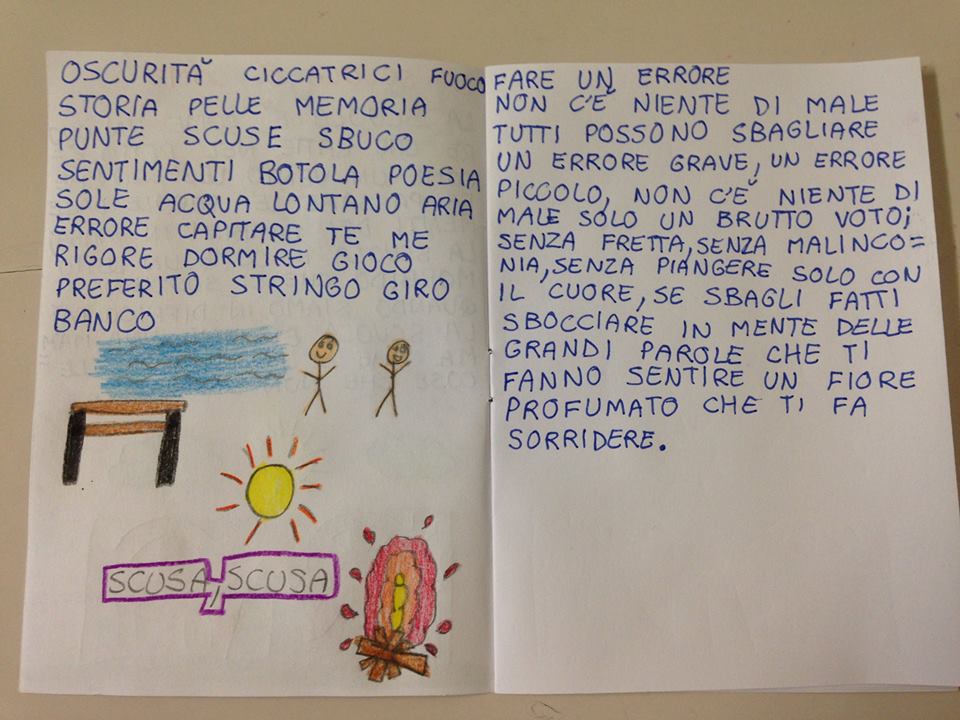 OSCURITÀ CICCATRICI FUOCO
STORIA PELLE MEMORIA
PUNTE SCUSE SBUCO
SENTIMENTI BOTOLA POESIA
SOLE ACQUA LONTANO ARIA
ERRORE CAPITARE TE ME
RIGORE DORMIRE GIOCO
PREFERITO STRINGO GIRO
BANCO
SCUSA, SCUSA
FARE UN ERRORE
NON C'È NIENTE DI MALE
TUTTI POSSONO SBAGLIARE
UN ERRORE GRAVE, UN ERRORE
PICCOLO, NON C'È NIENTE DI
MALE SOLO UN BRUTTO VOTO;
SENZA FRETTA, SENZA MALINCO=
NIA, SENZA PIANGERE SOLO CON
IL CUORE, SE SBAGLI FATTI
SBOCCIARE IN MENTE DELLE
GRANDI PAROLE CHE TI
FANNO SENTIRE UN FIORE
PROFUMATO CHE TI FA
SORRIDERE.